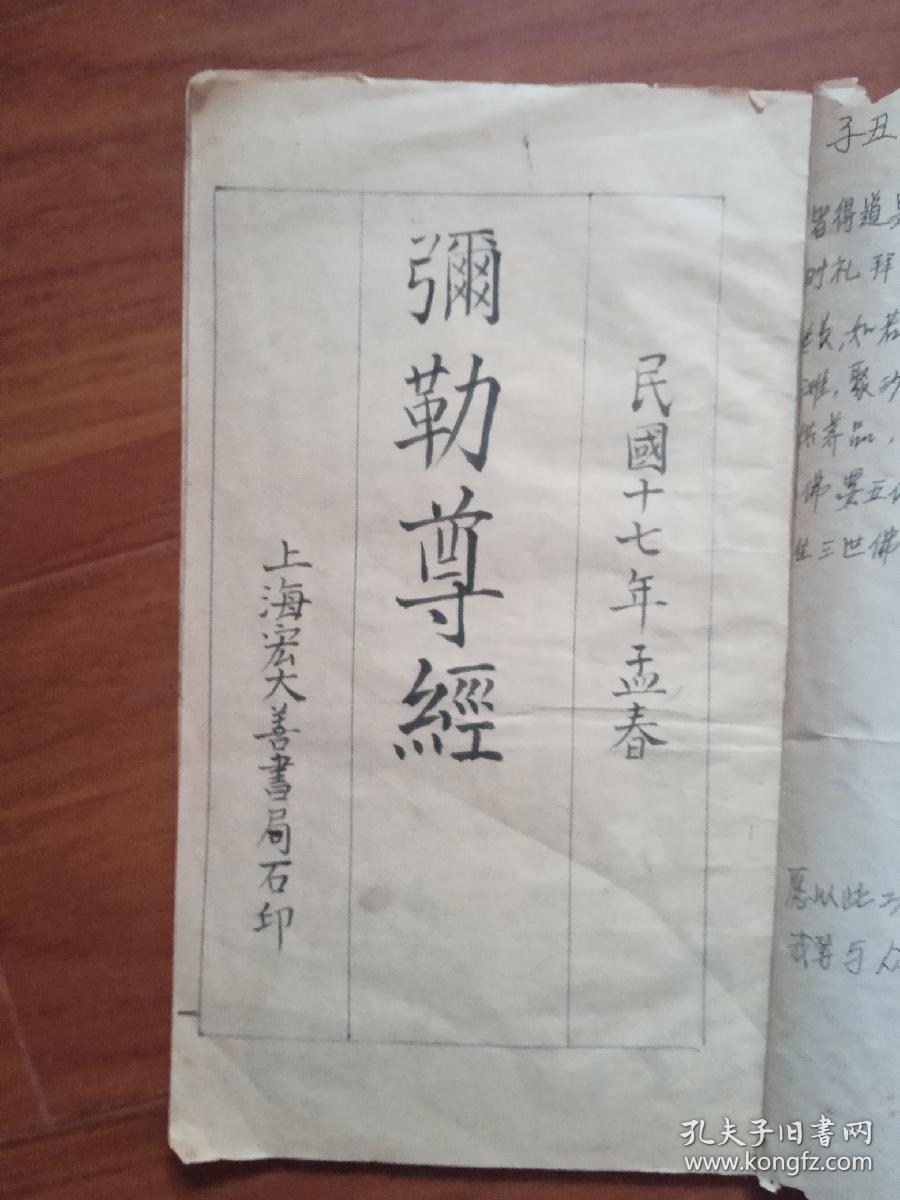 民國十七年孟春
彌勒尊經
上海宏大善書局石印
子丑
皆得道
时礼拜
如若
聚沙
供养品，
佛
生三世佛
愿以此
我等与众
孔夫子旧书网
www.kongfz.com